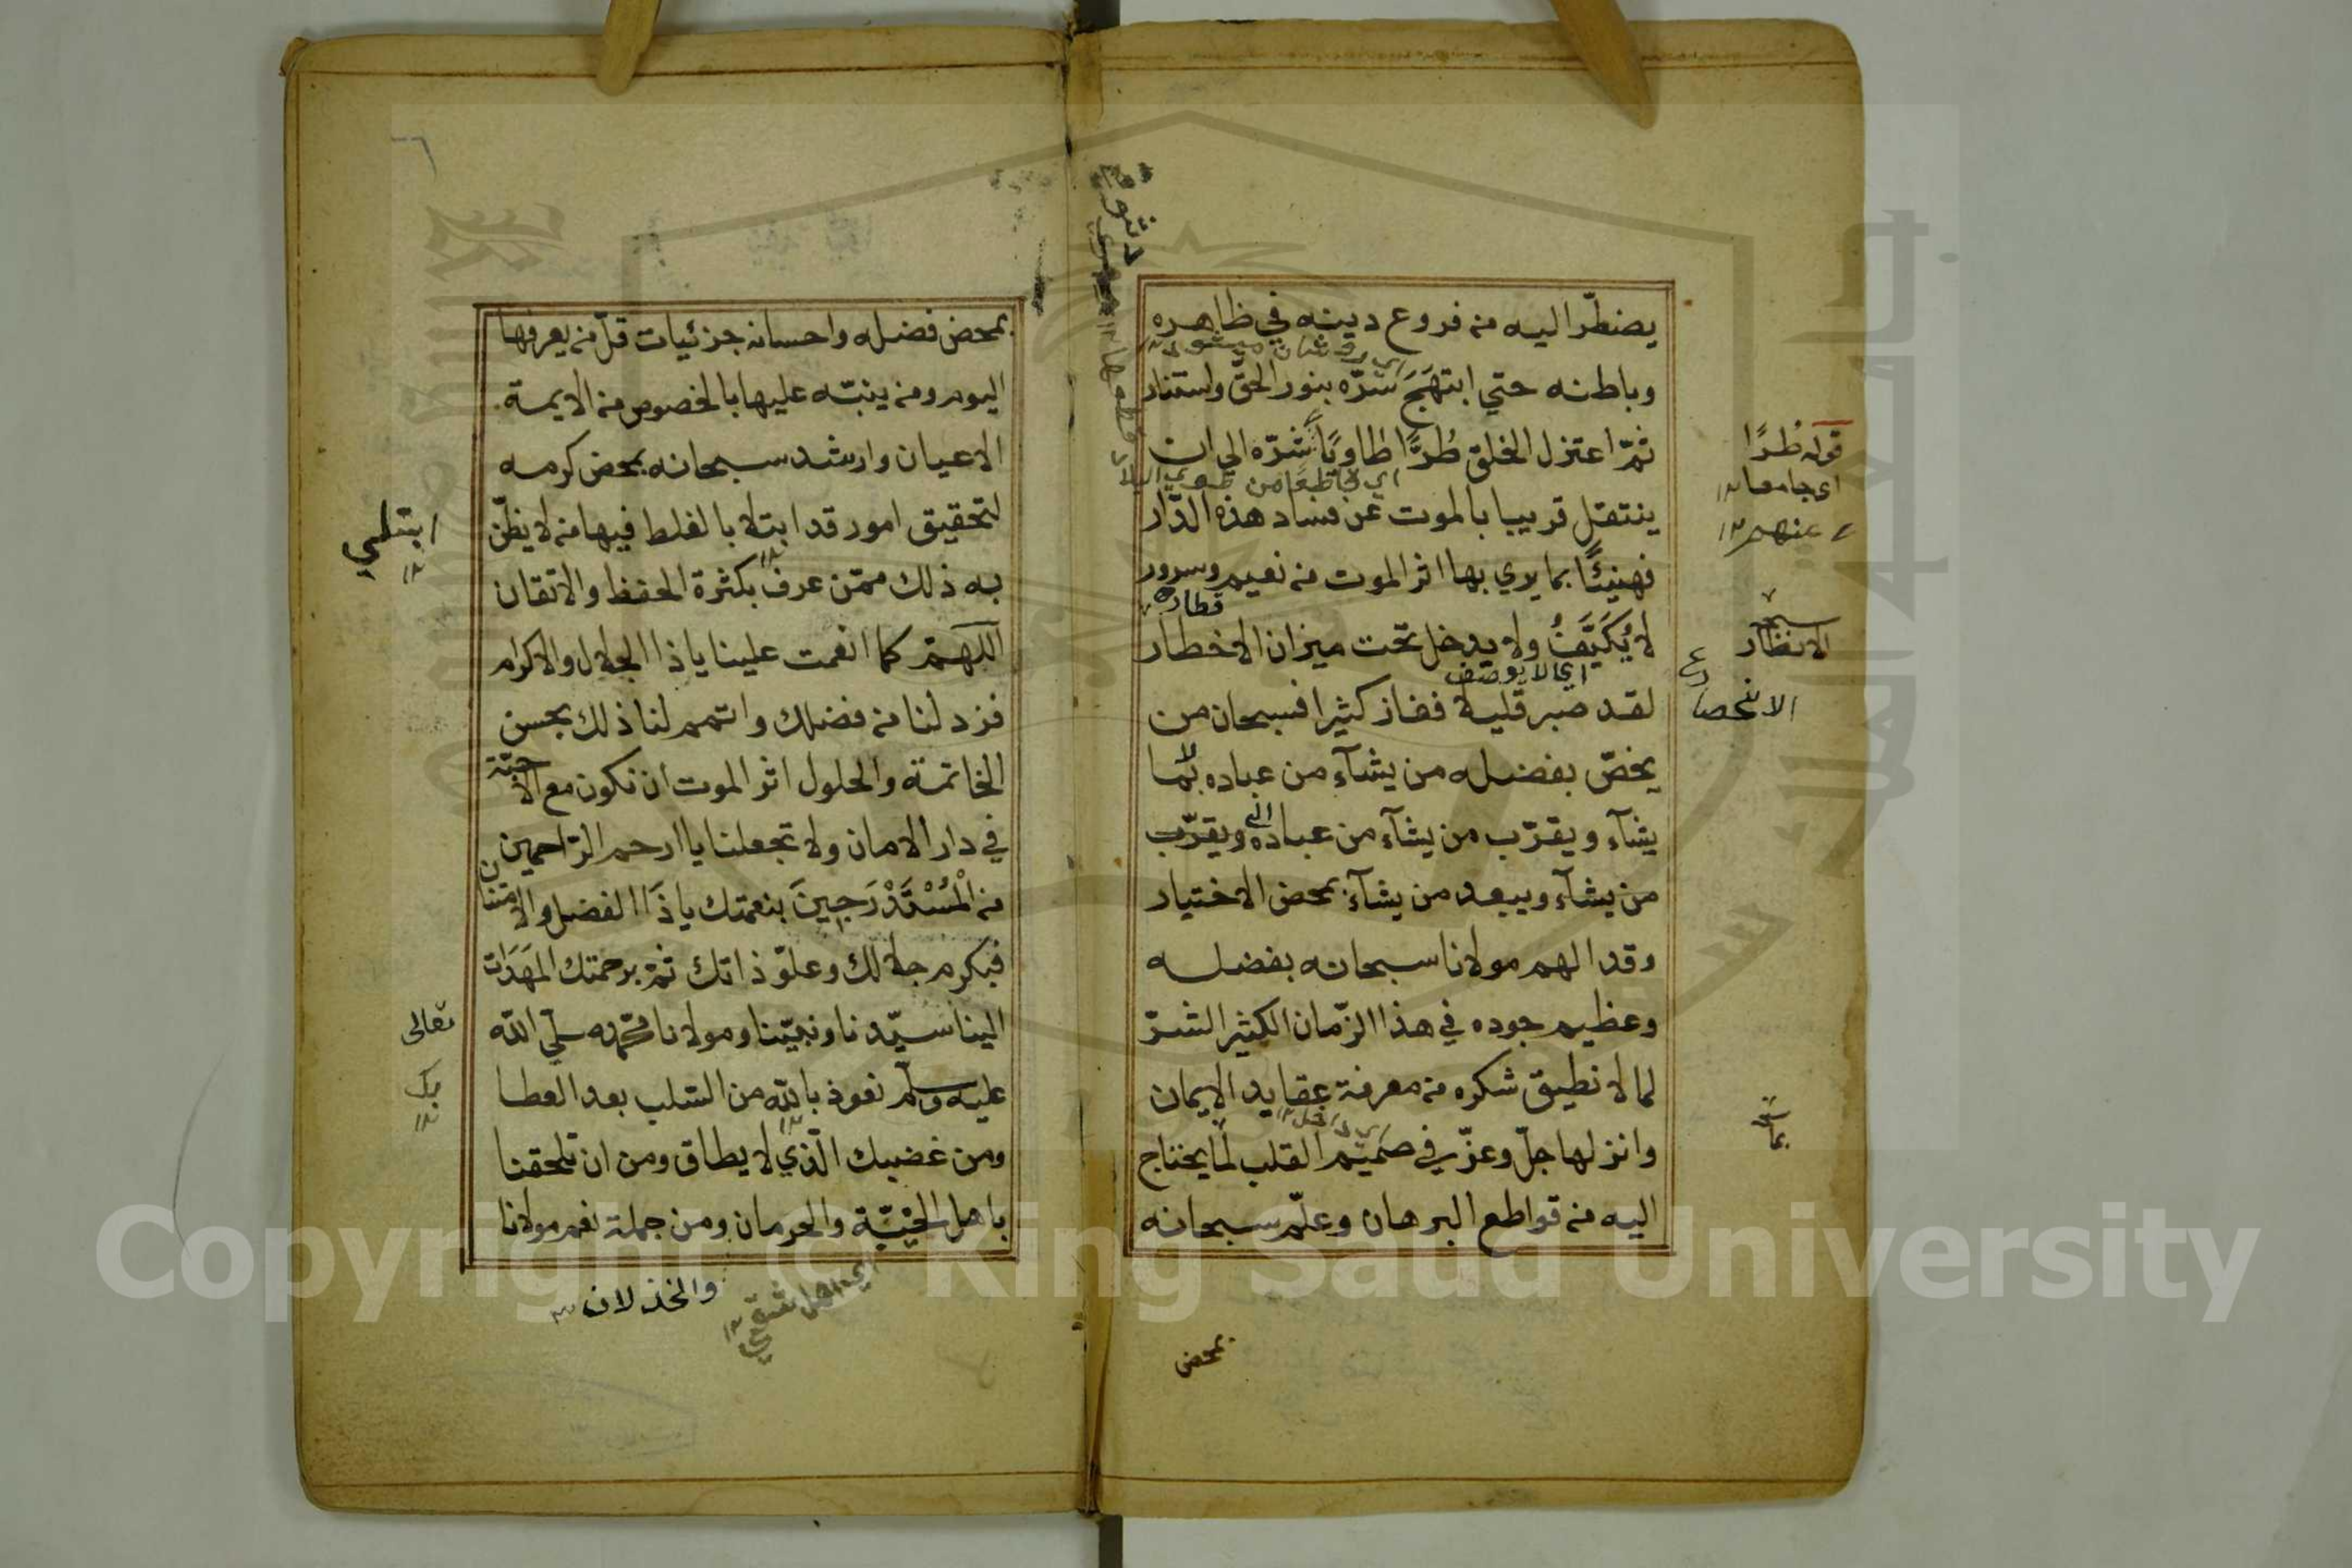 يضطرّ اليه من فروع دينه في ظاهره
وباطنه حتي ابتهَجَ سَرّه بنور الحقّ واستنار
ثمّ اعتزل الخلق طُرًّا طاويًا شرّه الي ان
ينتقل قريبا بالموت عن فساد هذه الدّار
فهنيئًا بما يري بها اثر الموت من نعيم وسرور
لا يُكَيَّفُ ولا يدخل تحت ميزان الاخطار
اي لا يوصف
لقد صبر قليلا ففاز كثيرا فسبحان من
يخصّ بفضله من يشآء من عباده بما
يشآء ويقرّب من يشآء من عباده ويقرّب
من يشآء ويبعد من يشآء بمحض الاختيار
وقد الهم مولانا سبحانه بفضله
وعظيم جوده في هذا الزّمان الكثير الشرّ
لما لا نطيق شكره من معرفة عقايد الايمان
وانزلها جلّ وعزّ في صَميم القلب لما يحتاج
اليه من قواطع البرهان وعلّم سبحانه
بمحض
قوله طُرًا
اي جامعا ١٢
عنهم ١٢
الانظار
الانحصا
بما
بمحض فضله واحسانه جزئيات قلّ من يعرفها
اليوم ومن ينبّه عليها بالخصوص من الايمة
الاعيان وارشد سبحانه بمحض كرمه
لتحقيق امور قد ابتلا بالغلط فيها من لا يظنّ
به ذلك ممّن عرف بكثرة الحفظ والاتقان
اللهمّ كما انعمت علينا ياذا الجلال والاكرام
فزد لنا من فضلك واتمم لنا ذلك بحسن
الخاتمة والحلول اثر الموت ان نكون مع الاحبّة
في دار الامان ولا تجعلنا يا ارحم الرّاحمين
من الْمُسْتَدْرَجِينَ بنعمتك ياذَا الفضل والامتنان
فبكرم جلالك وعلوّ ذاتك ثمّ برحمتك المهَدَات
الينا سيّدنا ونبيّنا ومولانا محمّد صلّي اللّه
عليه وسلّم نعوذ باللّه من السّلب بعد العطا
ومن غضبك الّذي لا يطاق ومن ان تلحقنا
باهل الخيْبَة والحرمان ومن جملة نعم مولانا
ابتلي
١٢
تعالى
بك
١٢
والخذلان
Copyright © King Saud University